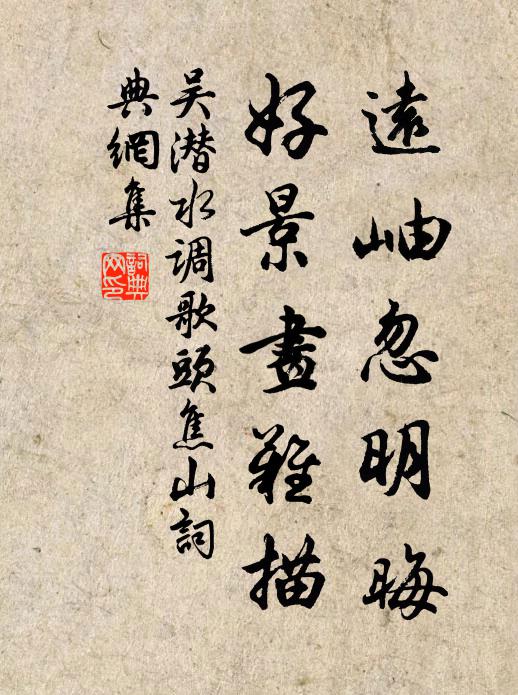 遠岫忽明晦
好景畫難描
吴潛水调歌頭焦山詞
典網集
詞典
网印